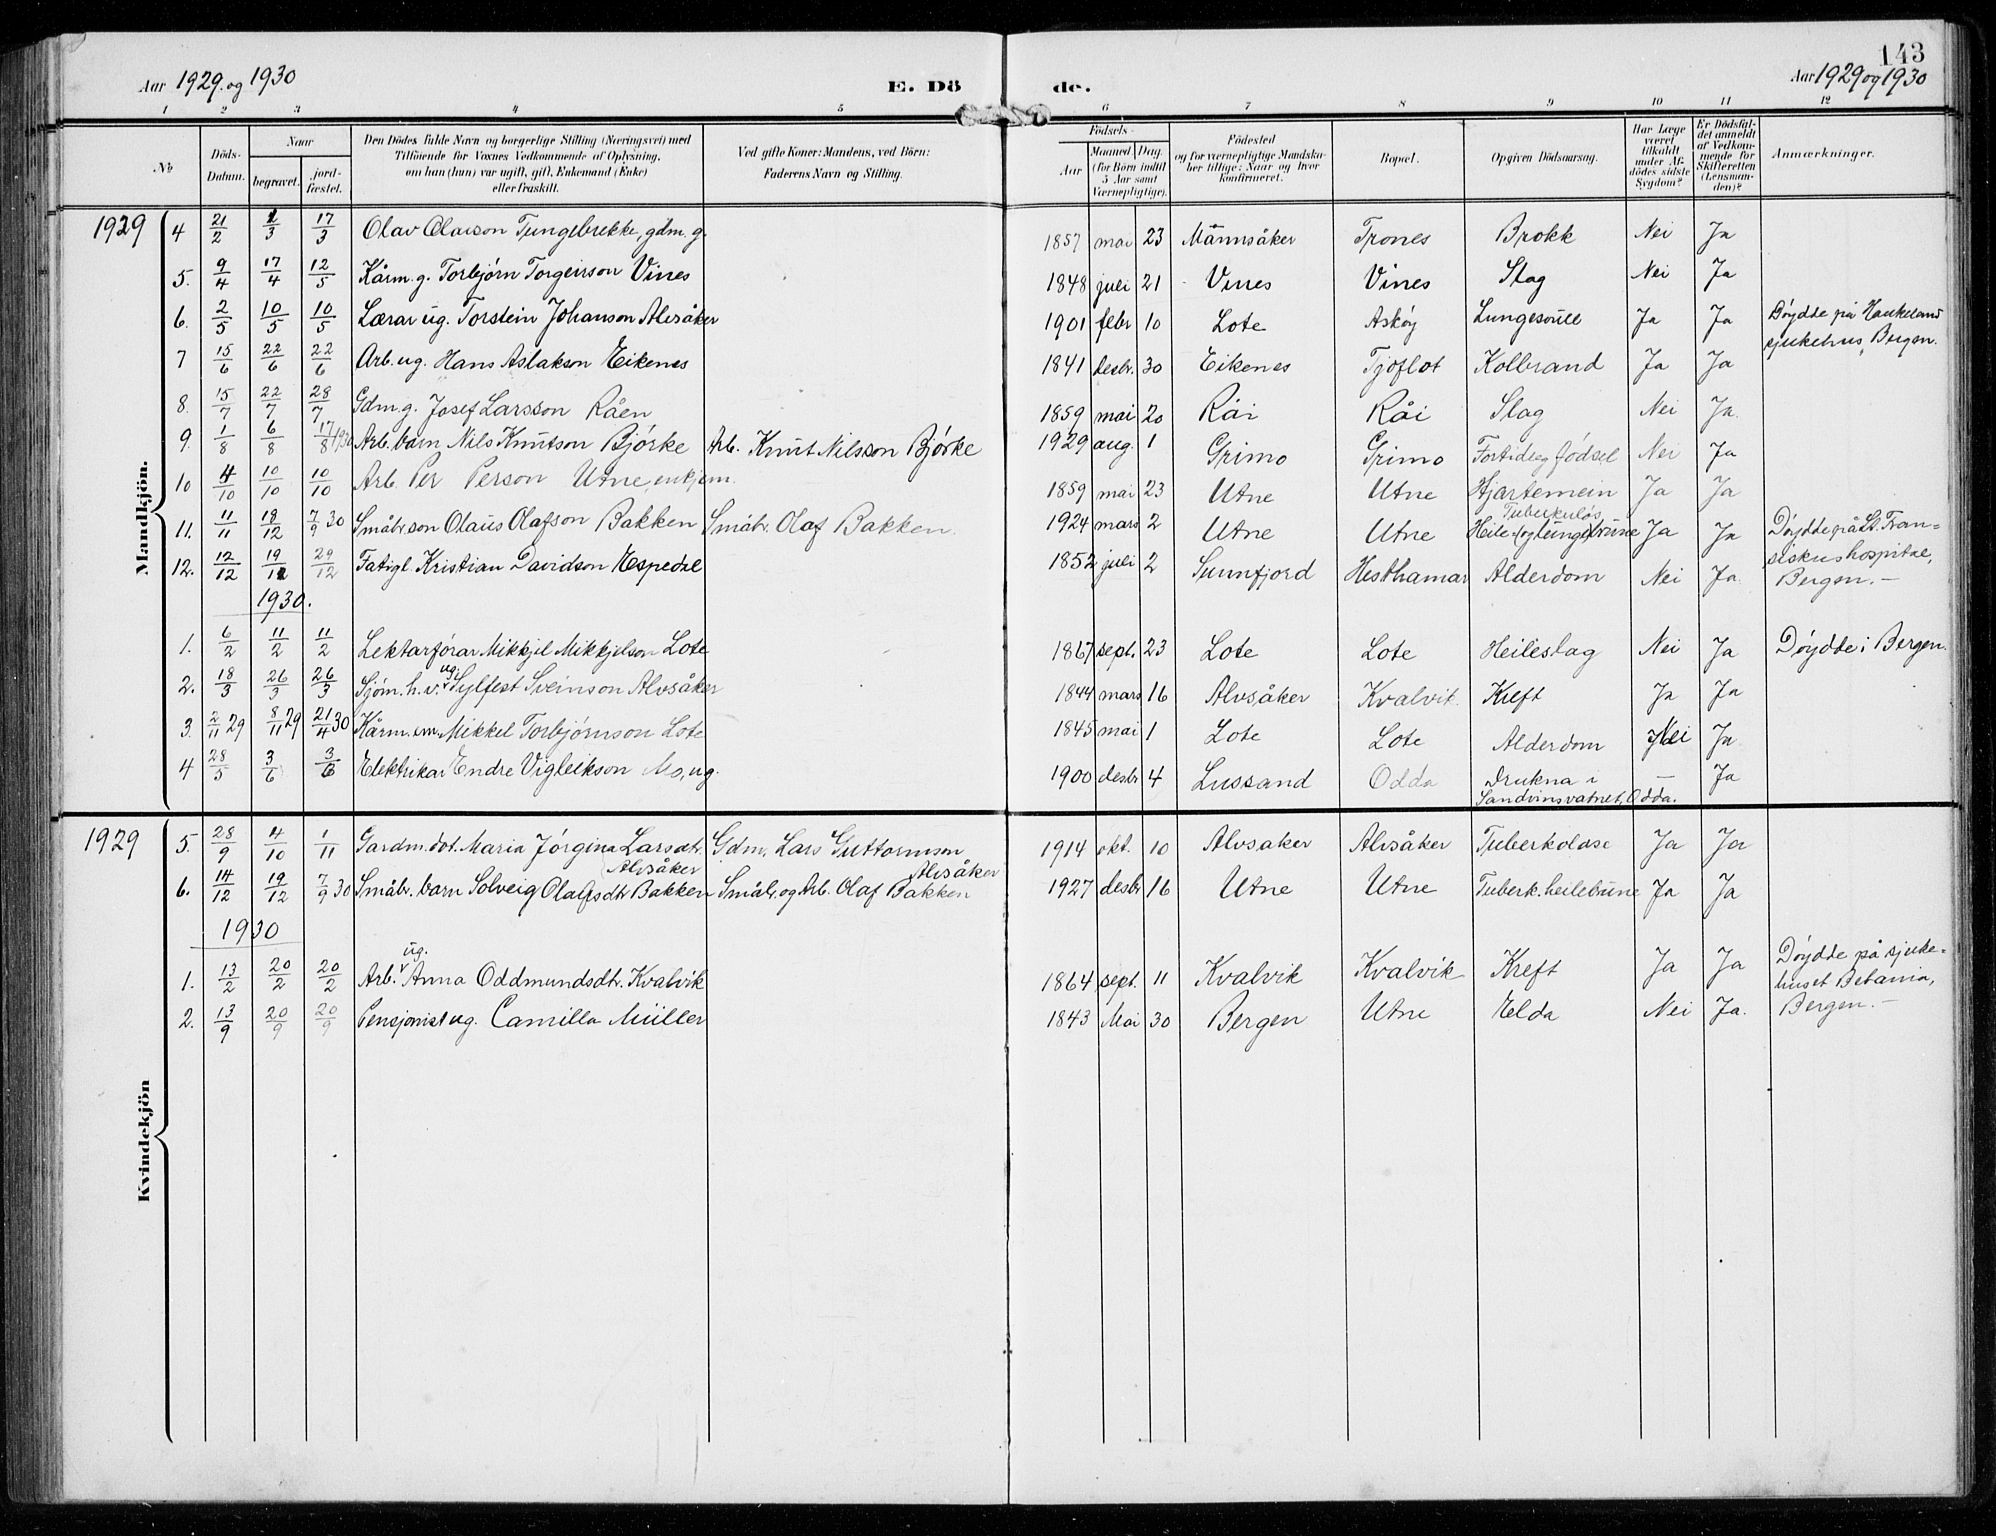 143
Aar 1929 og 1930
E. Dö
de.
Aar 1929 og 1930
1 2 3 4 5 6 7 8 9 10 11 12
No
Döds-Datum.
Naar
begravet.
jord-fæstet.
Den Dödes fulde Navn og borgerlige Stilling (Næringsvei) med Tilföiende for Voxnes Vedkommende af Oplysning, om han (hun) var ugift, gift, Enkemand (Enke) eller fraskilt.
Ved gifte Koner: Mandens, ved Börn: Faderens Navn og Stilling.
Födsels-
Aar
Maaned Dag
(for Börn indtil 5 Aar samt Værnepligtige).
Födested
og for værnepligtige Mandskaber tillige: Naar og hvor konfirmeret.
Bopæl.
Opgiven Dödsaarsag.
Har Læge været tilkaldt under Afdödes sidste Sygdom?
Er Dödsfaldet anmeldt af Vedkommende for Skifteretten (Lensmanden)?
Anmærkninger.
Mandkjön.
1929 4 21/2 2/3 17/3 Olav Olavson Tungebrekke, gdm. g. 1857 mai 23 Månnsåker Trones Brokk Nei Ja
5. 9/4 17/4 12/5 Kårm. g. Torbjørn Torgeirson Vines 1848 juli 21 Vines Vines Slag Nei Ja
6. 2/5 10/5 10/5 Lærar ug. Torstein Johanson Alvsåker 1901 febr 10 Lote Askøy Lungesvull Ja Ja Døydde på Haukeland sjukehus, Bergen.
7 15/6 22/6 22/6 Arb. ug. Hans Aslakson Eikenes 1841 desbr. 30 Eikenes Tjoflot Kolbrand Ja Ja
8. 15/7 22/7 28/7 Gdm. g. Josef Larsson Råen 1859 mai 20 Råi Råi Slag Nei Ja.
9. 1/8 6/8 17/8 1930 Arb. barn Nils Knutson Bjørke Arb. Knut Nilsson Bjørke 1929 aug. 1 Grimo Grimo Fortidleg fødsel Nei Ja
10 4/10 10/10 10/10 Arb. Per Person Utne, enkjem. 1859 mai 23 Utne Utne Hjartemein Ja Ja
11. 11/11 18/12 7/9 30 Småbr. son Olaus Olafson Bakken Småbr. Olaf Bakken. 1924 mars 2 Utne Utne Tuberkuløs Heile- (og lunge) brune Ja Ja Døydde på St. Fransiskushospitae, Bergen.—
12. 12/12 19/12 29/12 Fatigl. Kristian Davidson Espedal 1852 juli 2 Sunnfjord Hesthamar Alderdom Nei Ja.
1930.
1. 6/2 11/2 11/2 Lektarförar Mikkjel Mikkjelson Lote 1867 sept. 23 Lote Lote Heileslag Nei Ja Døydde i Bergen.
2. 18/3 26/3 26/3 Sjøm. h. v. ug. Sylfest Sveinson Alvsåker 1844 mars 16 Alvsåker Kvalvik. Kreft Ja Ja
3. 2/11 29 8/11 29 21/4 30 Kårm. em. Mikkel Torbjørnson Lote 1845 mai 1 Lote Lote Alderdom Nei Ja
4 28/5 3/6 3/6 Elektrikar Endre Vigleikson Mo, ug. 1900 desbr 4 Lussand Odda Drukna i Sandvinsvatnet, Odda. — Ja
Kvindekjön
1929 5. 28/9 4/10 1/11 Gardm. dot. Maria Jørgina Larsdtr. Alvsåker Gdm. Lars Guttormson Alvsåker 1914 okt. 10 Alvsaker Alvsåker Tuberkolose Ja Ja
6. 14/12 19/12 7/9 30 Småbr. barn Solveig Olafsdtr Bakken Småbr. og Arb. Olaf Bakken 1927 desbr 16 Utne Utne Tuberk. heilebrune Ja Ja
1930
1. 13/2 20/2 20/2 Arb. ug. Anna Oddmundsdtr. Kvalvik 1864 sept. 11 Kvalvik Kvalvik Kreft Ja Ja Døydde på sjukehuset Betania, Bergen.—
2. 13/9 20/9 20/9 Pensjonist ug. Camilla Müller 1843 Mai 30 Bergen Utne Elda Nei Ja.